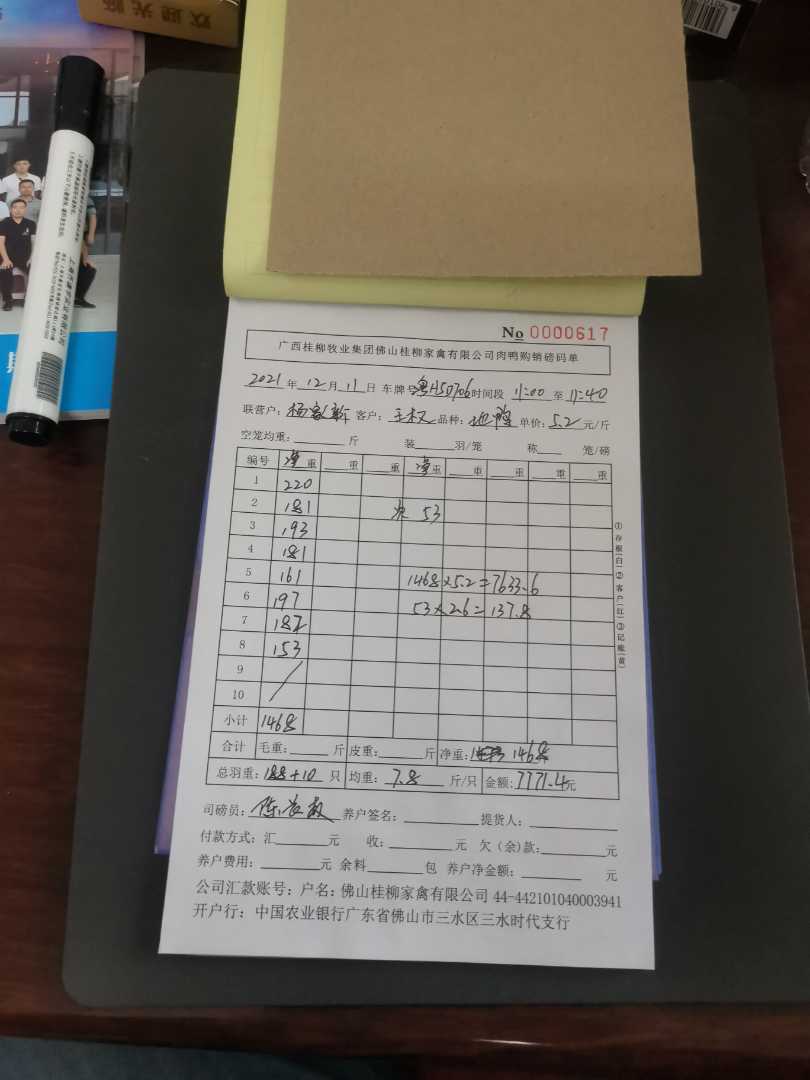 欢迎光临
No 0000617
广西桂柳牧业集团佛山桂柳家禽有限公司肉鸭购销磅码单
2021年12月11日 车牌号 粤H50706 时间段 11:00 至 11:40
联营户: 客户: 王权 品种: 单价: 5.2 元/斤
空笼均重: 斤 装 羽/笼 称 笼/磅
编号 净重 重 重 净重 重 重 重 重
1 220
2 181 次 53
3 193
4 181
5 161 1468×5.2=7633.6
6 197 53×2.6=137.8
7 182
8 153
9
10
小计 1468
合计 毛重: 斤 皮重: 斤 净重: 1468
总羽重: 188+10 只 均重: 7.8 斤/只 金额: 7771.4元
司磅员: 养户签名: 提货人:
付款方式: 汇 元 收: 元 欠(余)款: 元
养户费用: 元 余料 包 养户净金额: 元
公司汇款账号: 户名: 佛山桂柳家禽有限公司 44-442101040003941
开户行: 中国农业银行广东省佛山市三水区三水时代支行
①存根(白)②客户(红)③记账(黄)